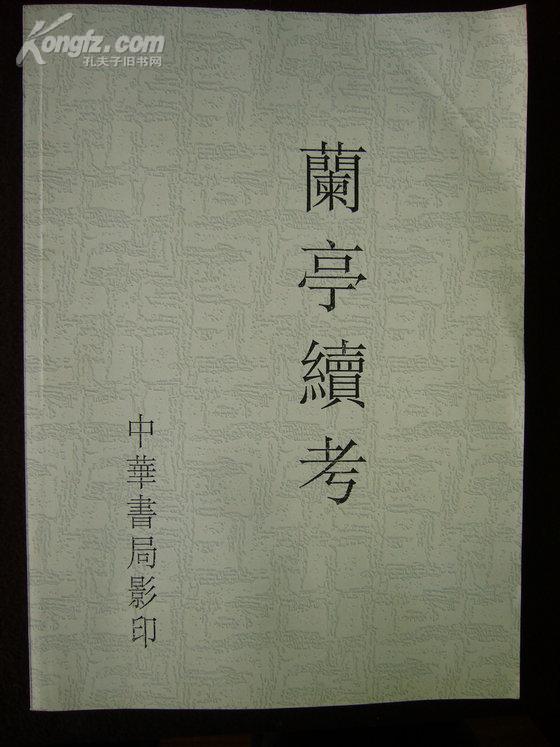 Kongfz.com
孔夫子旧书网
蘭亭續考
中華書局影印